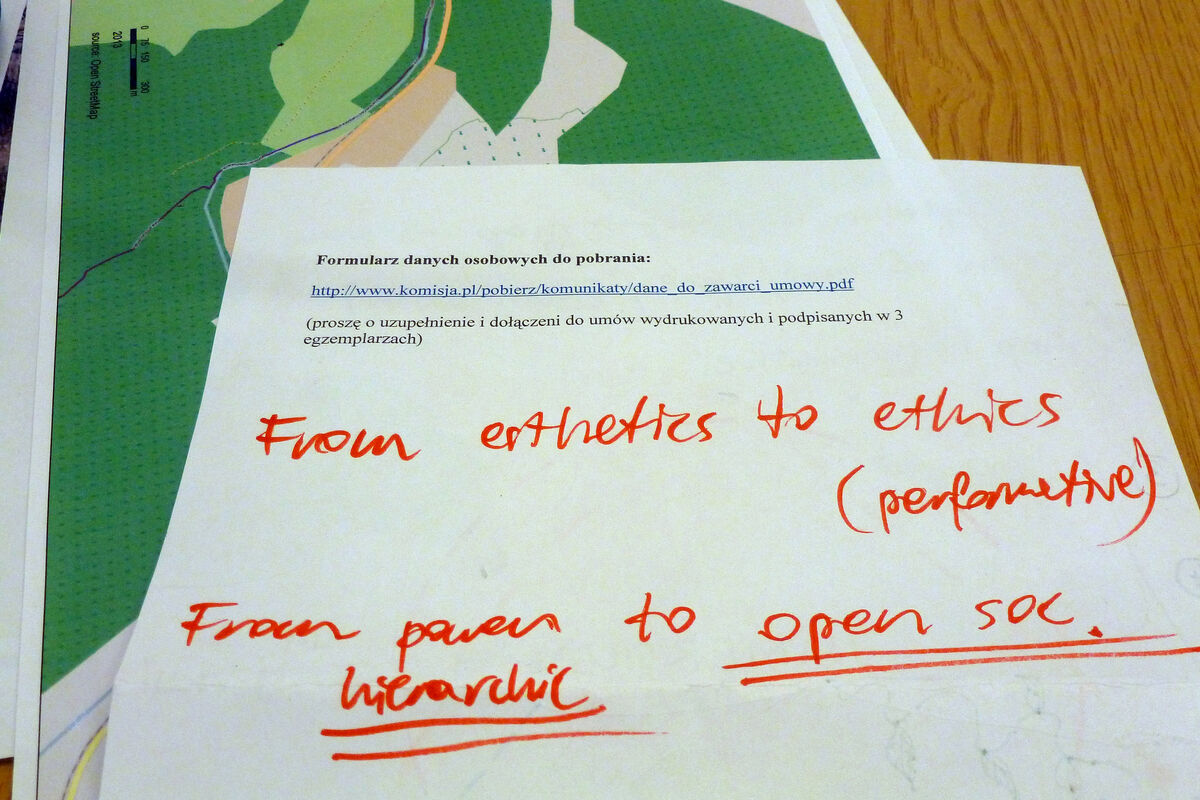 0 75 150 300 m
2013
source: Open StreetMap
Formularz danych osobowych do pobrania:
http://www.komisja.pl/pobierz/komunikaty/dane_do_zawarci_umowy.pdf
(proszę o uzupełnienie i dołączeni do umów wydrukowanych i podpisanych w 3
egzemplarzach)
From esthetics to ethics
(performative)
From power to open soc.
hierarchic